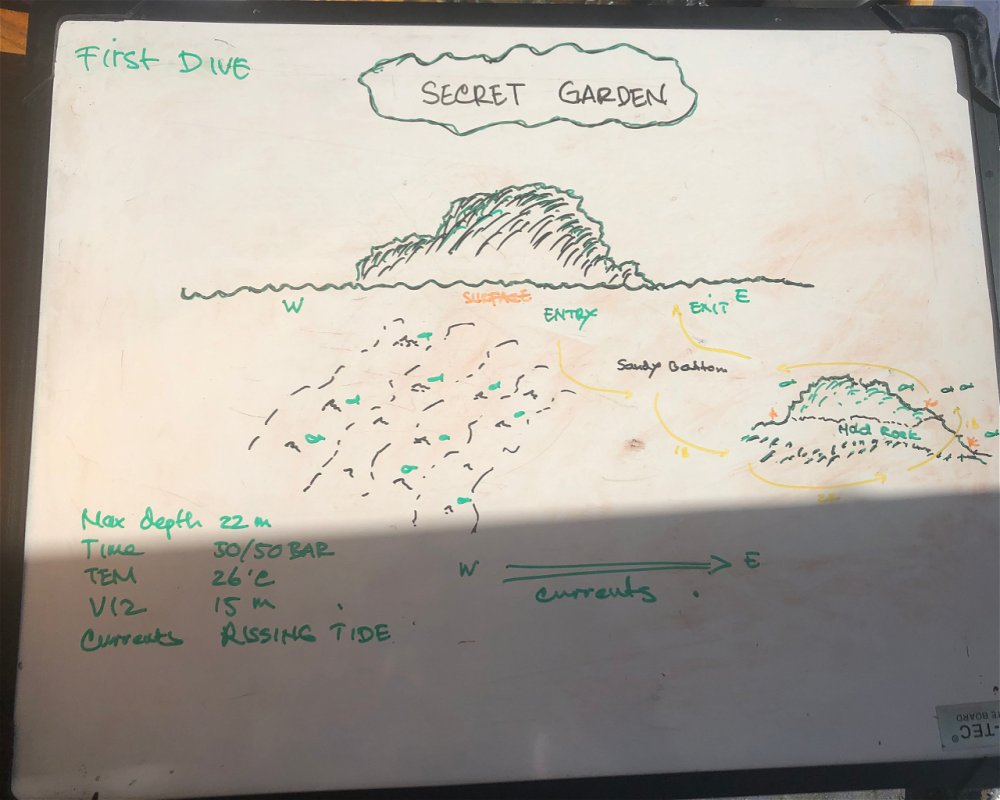 First DIVE
SECRET GARDEN
W
SURFACE
ENTRY
EXIT
E
Sandy Bottom
Hdd Rock
18
18
22
Max depth 22 m
Time 50/50 BAR
TEM 26°C
VIZ 15 m
Currents RISSING TIDE
W
E
currents
-TEC®
TE BOARD